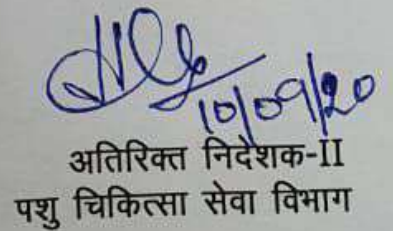 10/09/20
अतिरिक्त निदेशक-II
पशु चिकित्सा सेवा विभाग